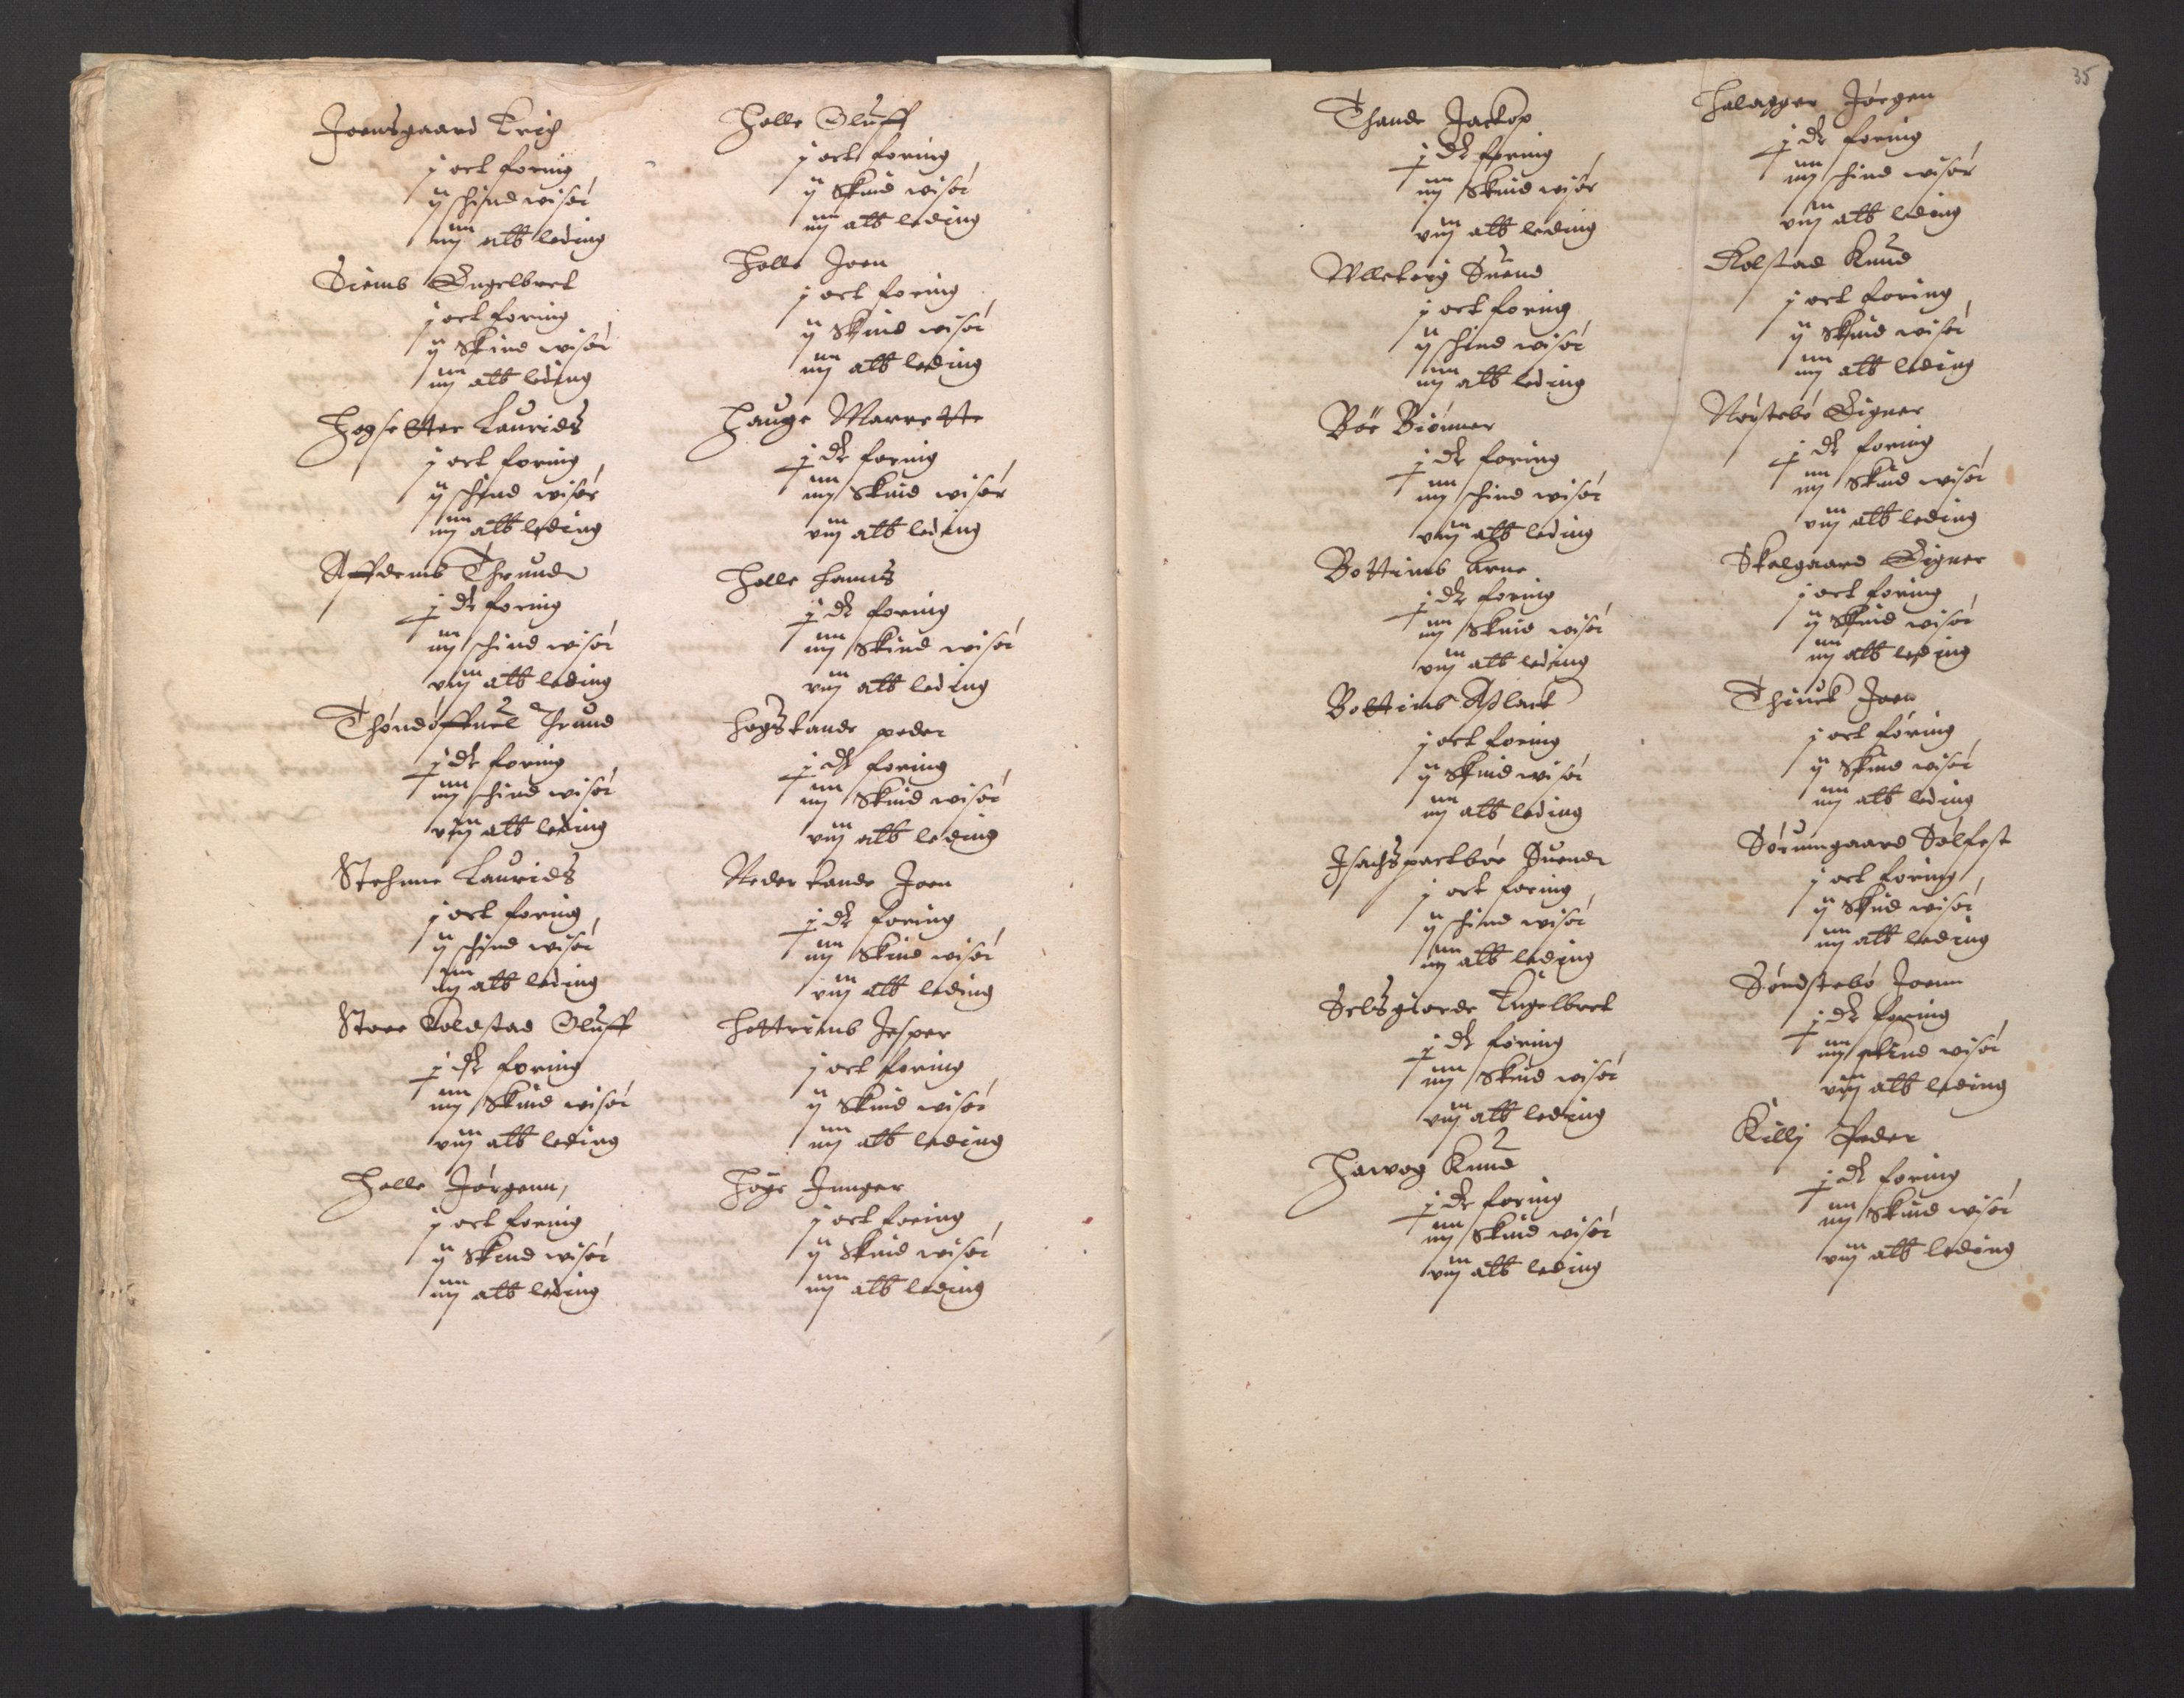 Joensgaard Erich
j ort foring
ij schind wisør
iiij alb leding
Siems Engelbret
j ort foring
ij Skind wisør
iiij alb leding
Høgsetter Laurids
j ort foring
ij schind wisør
iiij alb leding
Affdems Thrund
j dr foring
iiij schind wisør
viij alb leding
Thrund
j dr foring
iiij schind wisør
viij alb leding
Stehnne Laurids
j ort foring
ij schind wisør
iiij alb leding
Store Kolstad Oluff
j dr foring
iiij Skind wisør
viij alb leding
Holle Jørgenn
j ort foring
ij Skind wisør
iiij alb leding
Holle Oluff
j ort foring
ij Skind wisør
iiij alb leding
Holle Joen
j ort foring
ij Skind wisør
iiij alb leding
Hauge Marrette
j dr foring
iiij Skind wisør
viij alb leding
Holle Hanns
j dr foring
iiij Skind wisør
viij alb leding
Høgstande peder
j dr foring
iiij Skind wisør
viij alb leding
Neder tande Joen
j dr foring
iiij Skind wisør
viij alb leding
Hottrims Jesper
j ort foring
ij Skind wisør
iiij alb leding
Høge Junger
j ort foring
ij Skind wisør
iiij alb leding
35
Thande Jackop
j dr foring
iiij Skind wisør
viij alb leding
Wlleberg Suend
j ort foring
ij schind wisør
iiij alb leding
Bøe Biønner
j dr foring
iiij schind wisør
viij alb leding
Bottims Arne
j dr foring
iiij Skind wisør
viij alb leding
Bottims Aslack
j ort foring
ij Skind wisør
iiij alb leding
Suend
j ort foring
ij schind wisør
iiij alb leding
Selsgiorde Engelbret
j dr foring
iiij Skind wisør
viij alb leding
Horwog Knud
j dr foring
iiij Skind wisør
viij alb leding
Halagger Jørgen
j dr foring
iiij schind wisør
viij alb leding
Rolstad Knud
j ort foring
ij Skind wisør
iiij alb leding
Nørstebø Signer
j dr foring
iiij Skind wisør
viij alb leding
Skolgaard Signer
j ort foring
ij Skind wisør
iiij alb leding
Joen
j ort foring
ij Skind wisør
iiij alb leding
Sørumgaard Sølfest
j ort foring
ij Skind wisør
iiij alb leding
Søndstebø Joenn
j dr foring
iiij skind wisør
viij alb leding
Killj Peder
j dr foring
iiij Skind wisør
viij alb leding